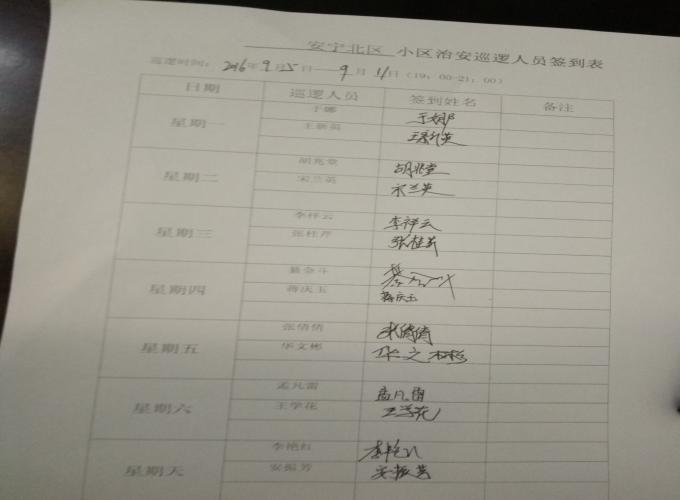 安宁北区 小区治安巡逻人员签到表
巡逻时间: 2016年9月5日——9月11日(19:00-21:00)
日期 巡逻人员 签到姓名 备注
星期一
于娜 于娜
王新英 王新英
星期二
胡兆堂 胡兆堂
宋兰英 宋兰英
星期三
李祥云 李祥云
张桂芹 张桂芹
星期四
蒋庆玉 蒋庆玉
星期五
张倩倩 张倩倩
华文彬 华文彬
星期六
孟凡雷 孟凡雷
王学花 王学花
星期天
李艳红 李艳红
安振芳 安振芳